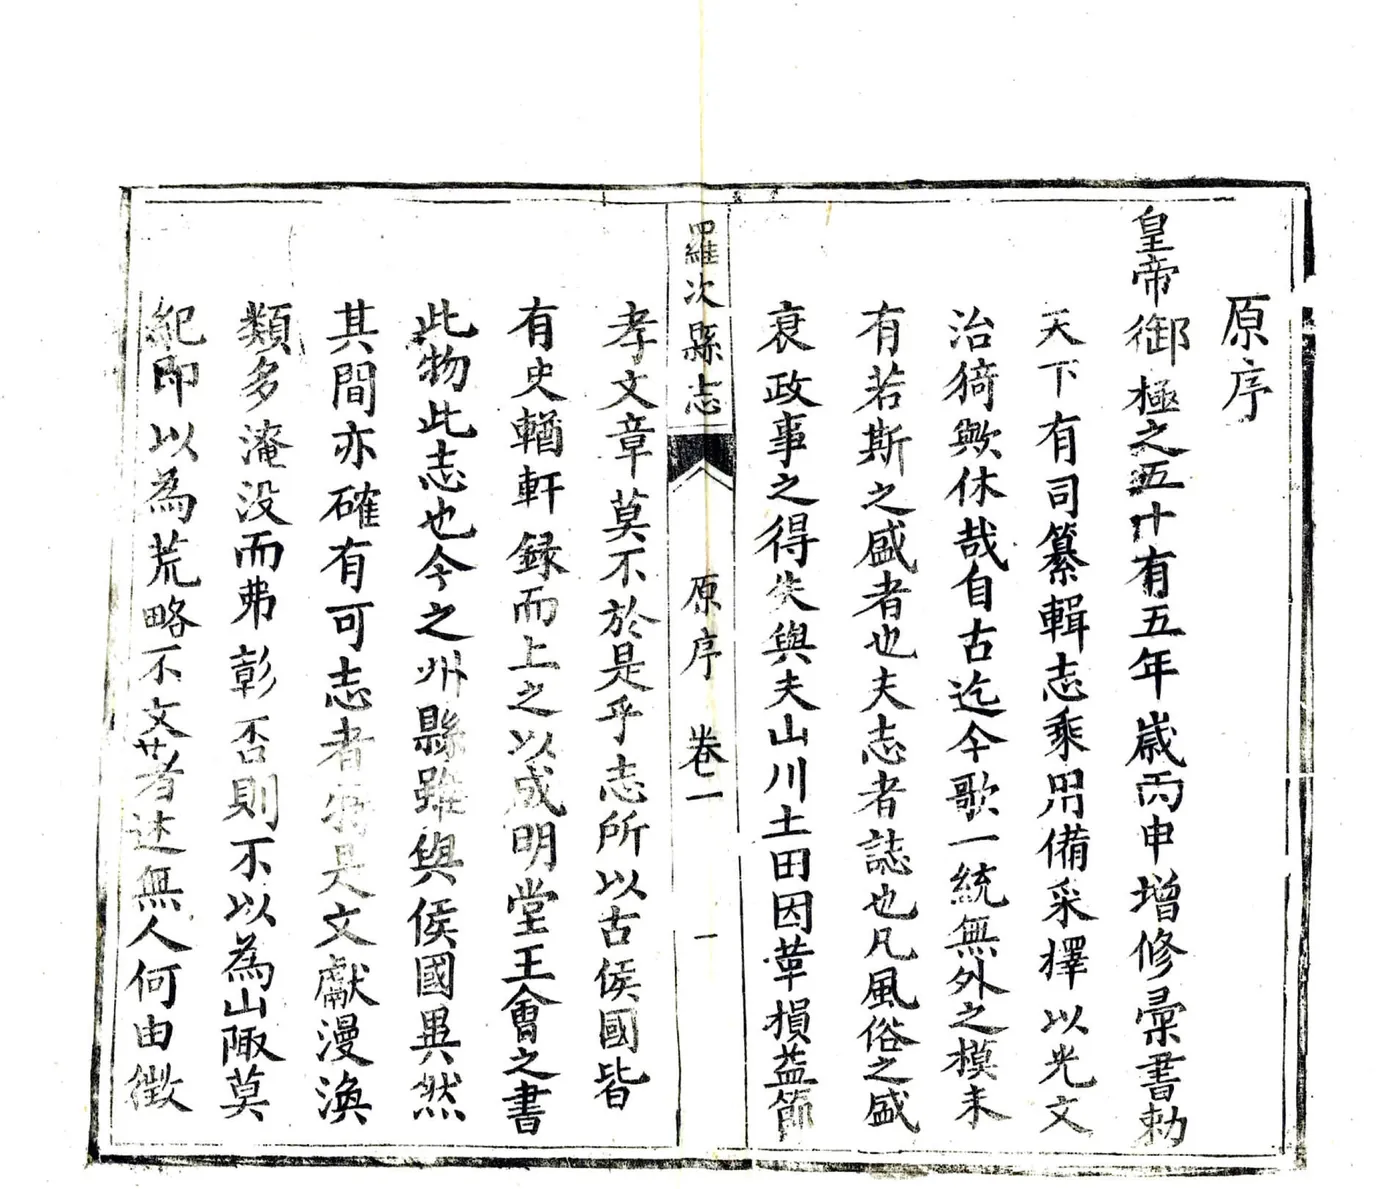 原序
皇帝御極之五十有五年歲丙申增修彙書勅
天下有司纂輯志乘用備采擇以光文
治猗歟休哉自古迄今歌一統無外之模未
有若斯之盛者也夫志者誌也凡風俗之盛
衰政事之得失與夫山川土田因革損益節
羅次縣志
原序 卷一
一
孝文章莫不於是乎志所以古侯國皆
有史輶軒録而上之以成明堂王會之書
此物此志也今之州縣雖與侯國異然
其間亦確有可志者特是文獻漫漶
類多淹没而弗彰否則不以為山陬莫
紀即以為荒略不文著述無人何由徵